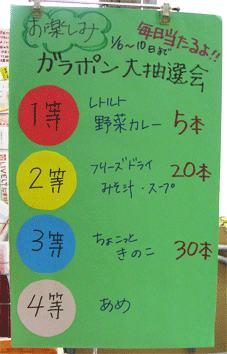 お楽しみ
毎日当たるよ!!
1/6~10日まで
ガラポン大抽選会
1等
レトルト
野菜カレー 5本
2等
フリーズドライ
みそ汁・スープ 20本
3等
ちょこっと
きのこ 30本
4等
あめ